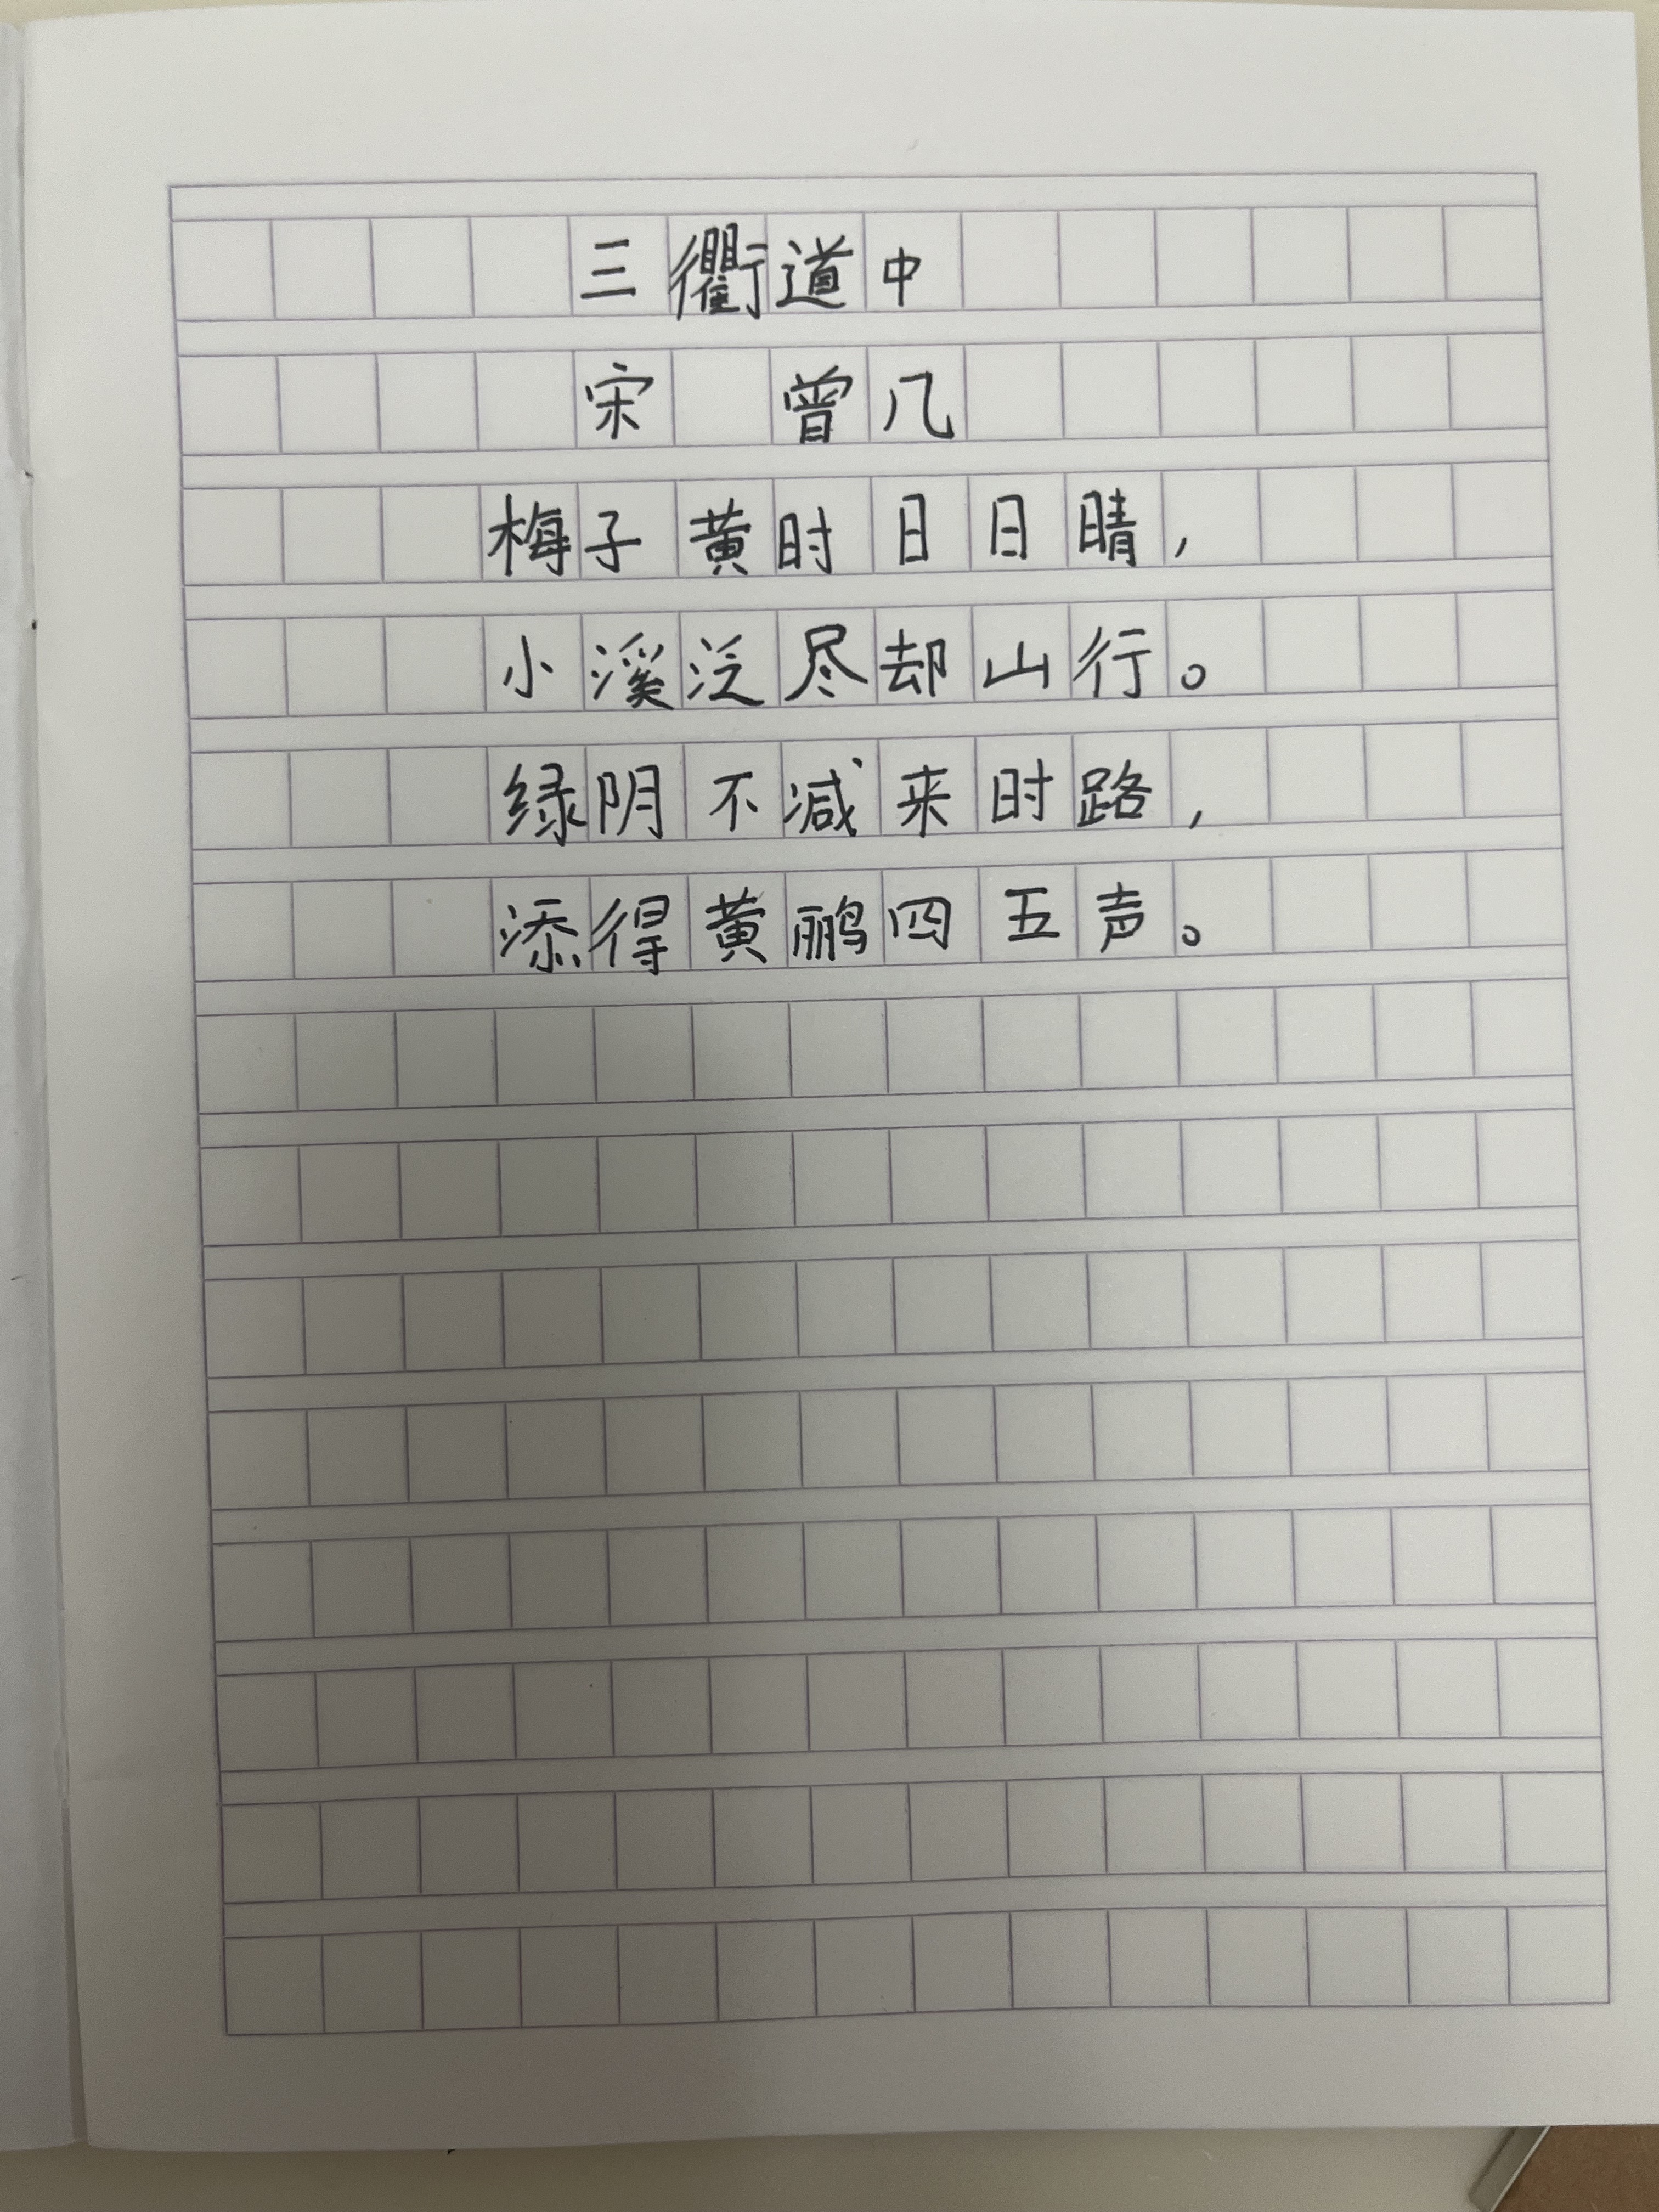 三衢道中
宋 曾几
梅子黄时日日晴，
小溪泛尽却山行。
绿阴不减来时路，
添得黄鹂四五声。